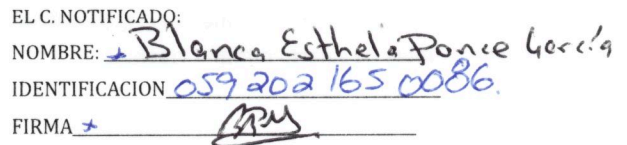 EL C. NOTIFICADO:
NOMBRE: Blanca Esthela Ponce García
IDENTIFICACION 059 202 165 0086.
FIRMA